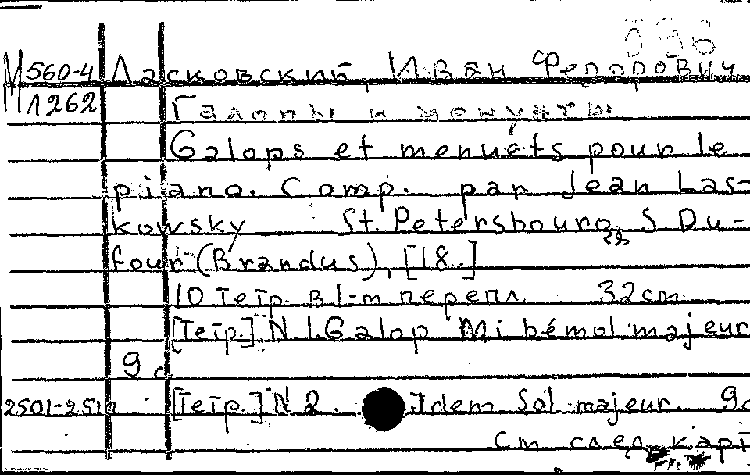 М 560-4 Ласковский, Иван Федорович.
1262 Галопы и менуэты
Galops et menuets pour le
piano. Comp. par Jean Las-
kowsky St. Petersbourg, S Du-
four (Brandus), [18..]
10 тетр. в 1-м перепл. 32 cm
[Тетр.] N 1. Galop Mi bémol majeur
9 с
2501-251 [Тетр.] N 2. Idem Sol majeur. 9с
См след. карт